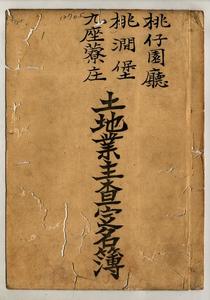 桃仔園廳
桃澗堡
九座藔庄
土地業主查定名簿